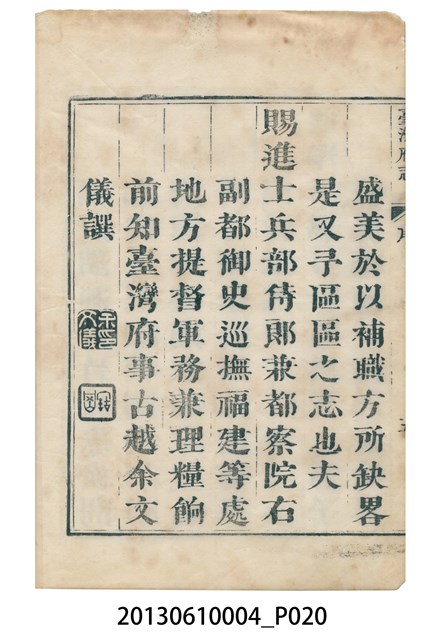 臺灣府志
序
盛美於以補職方所缺畧
是又予區區之志也夫
賜進士兵部侍郎兼都察院右
副都御史巡撫福建等處
地方提督軍務兼理糧餉
前知臺灣府事古越余文
儀譔
余文儀印
20130610004_P020